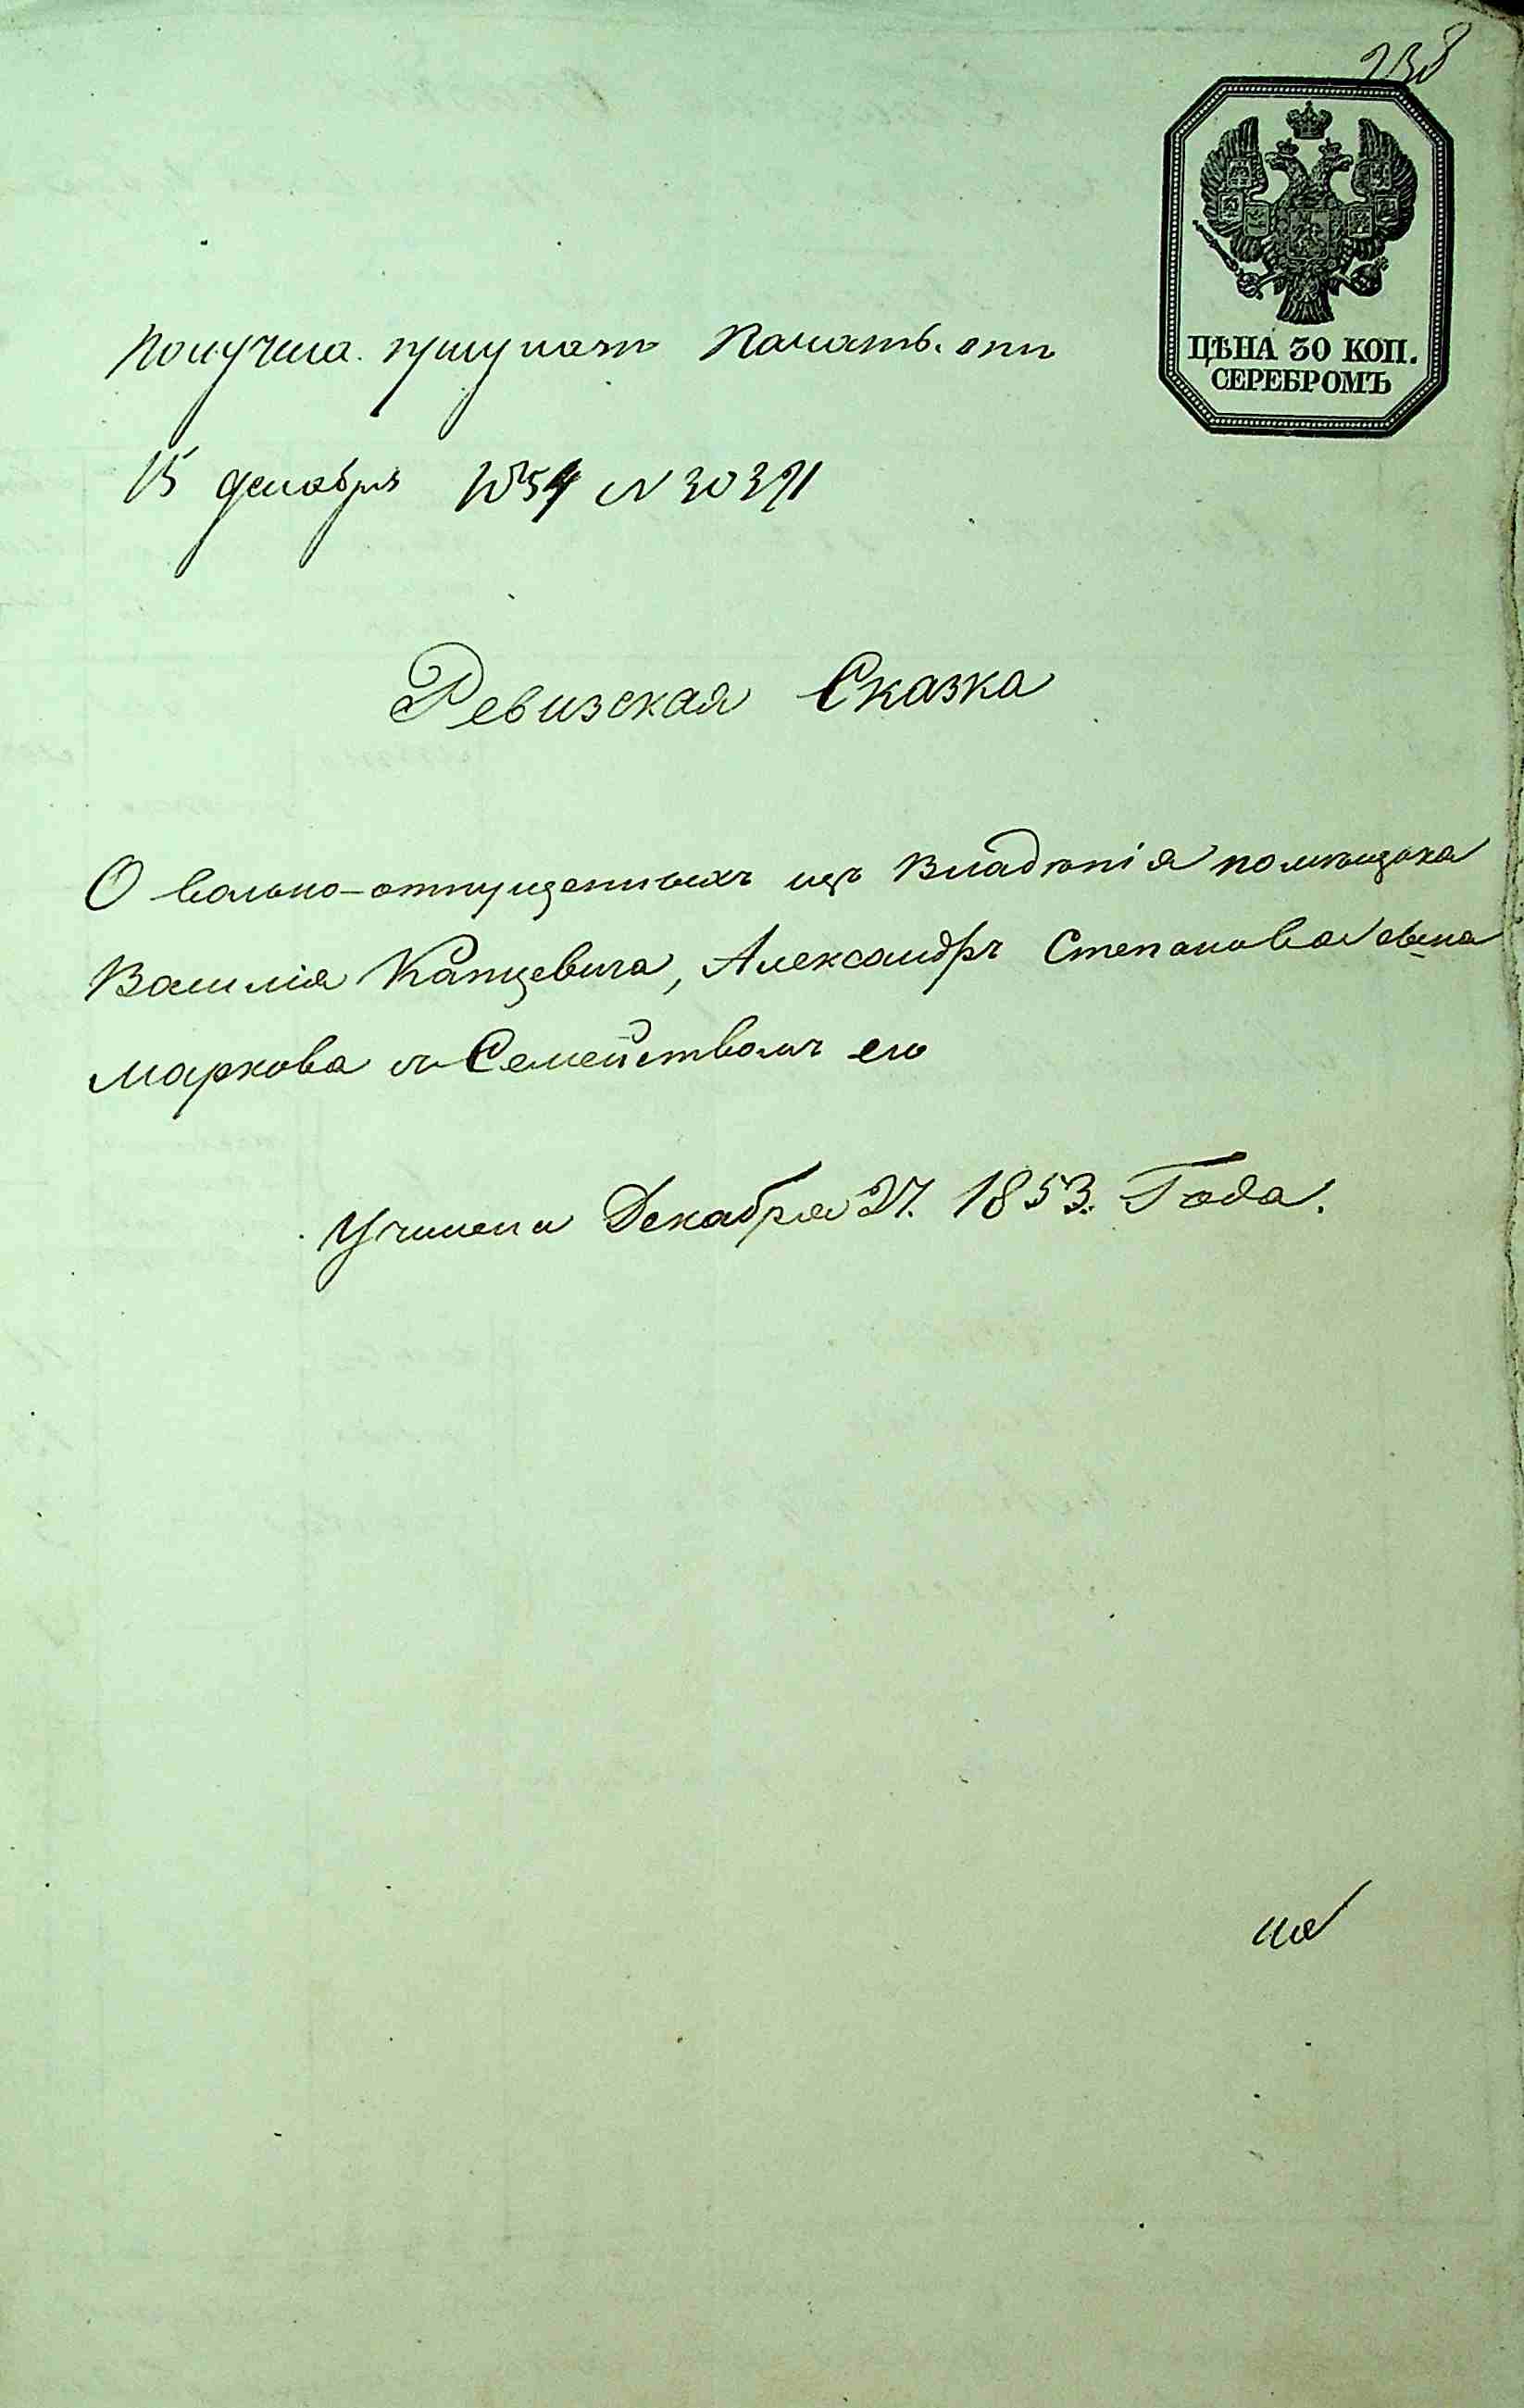 238
ЦѢНА 30 КОП.
СЕРЕБРОМЪ
Получена Палатъ. отъ
15 декабря 1854 N 30371
Ревизская Сказка
О вольно-отпущенныхъ изъ Владѣнія помѣщика
Василія Капцевича, Александръ Степанова сына
Маркова съ Семействомъ его
Учинена Декабря 27. 1853. Года.